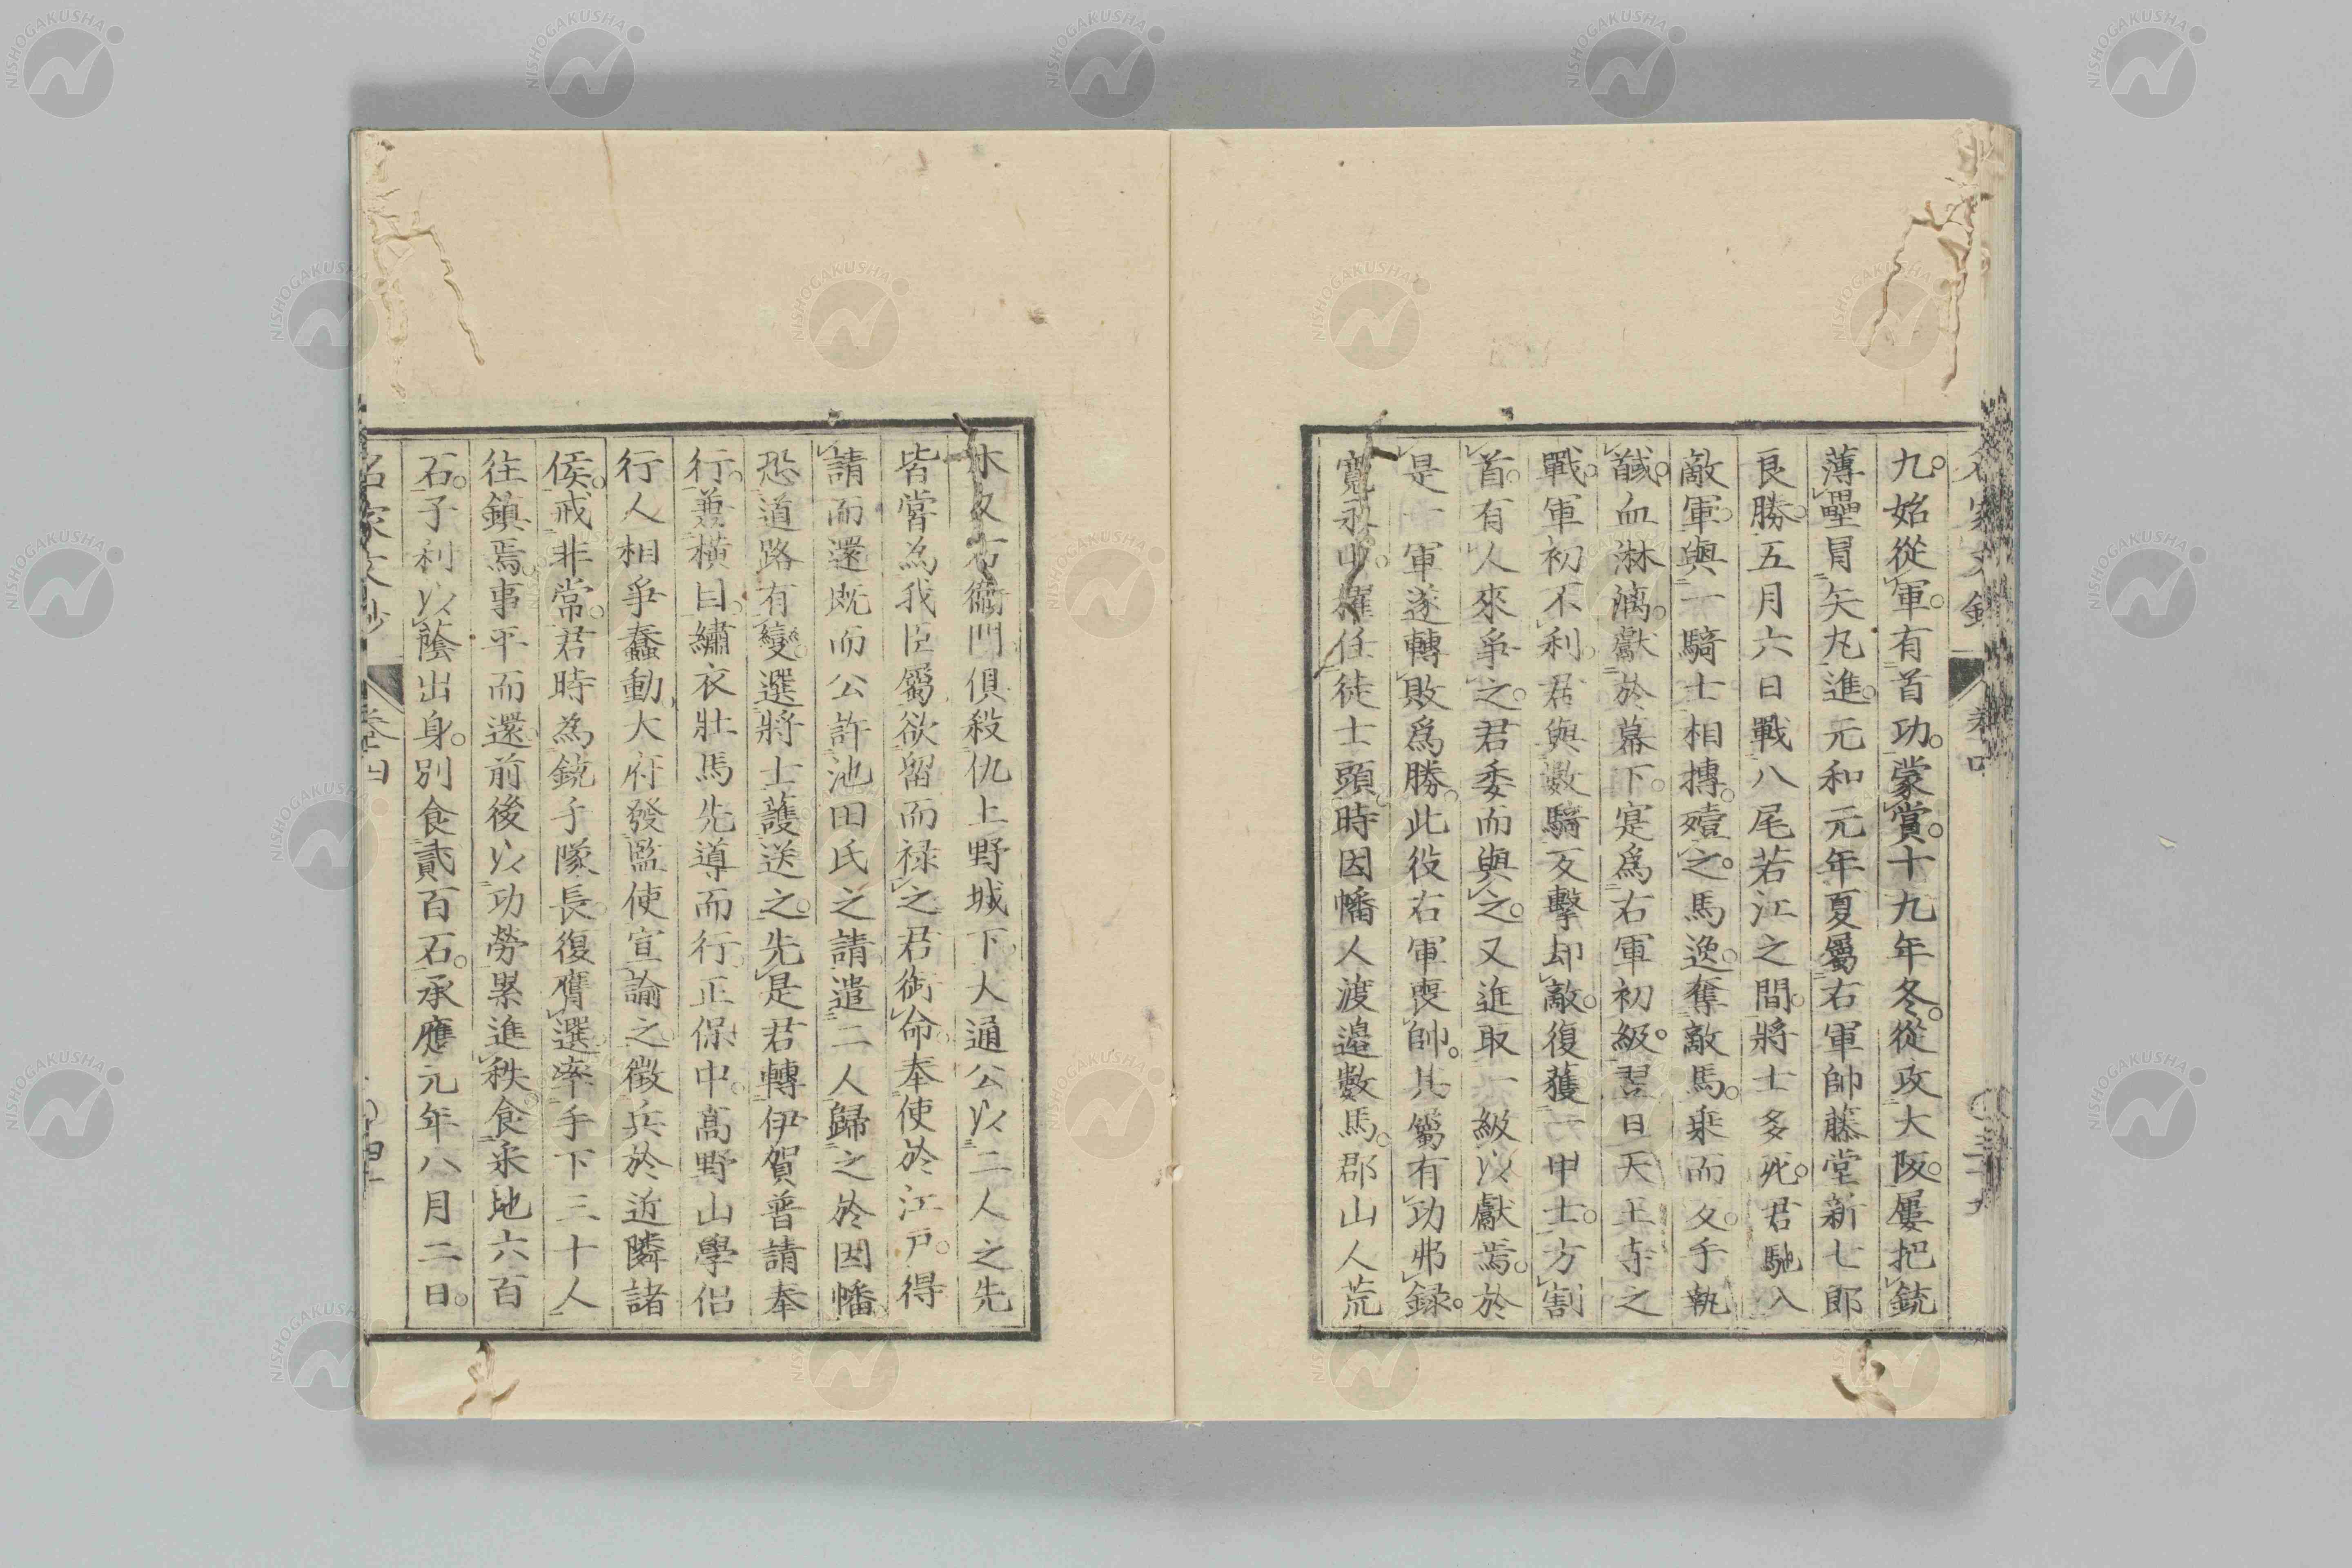 九。始從軍。有首功。蒙賞。十九年冬。從攻大阪。屢把銃
薄壘冒矢丸進。元和元年夏屬右軍帥藤堂新七郎
良勝。五月六日戰八尾若江之間。將士多死。君馳入
敵軍。與一騎士相搏。殪之。馬逸。奪敵馬。乘而又。手執
馘。血淋漓。獻於幕下。寔爲右軍初級。翌日天王寺之
戰。軍初不利。君與數騎反擊却敵。復獲一甲士。方割
首。有人來爭之。君委而與之。又進取一級以獻焉。於
是一軍遂轉敗爲勝。此役右軍喪帥。其屬有功弗録。
寬永中。擢任徒士頭。時因幡人渡邉數馬。郡山人荒
木又右衛門俱殺仇上野城下。大通公以二人之先
皆嘗為我臣屬欲留而禄之。君銜命奉使於江戸。得
請而還。既而公許池田氏之請。遣二人歸之於因幡
恐道路有變。選將士護送之。先是君轉伊賀普請奉
行。兼横目。繡衣壯馬先導而行。正保中。高野山學侶
行人相爭蠢動。大府發監使宣諭之。徴兵於近隣諸
侯。戒非常。君時為銃手隊長。復膺選率手下三十人
往鎮焉。事平而還。前後以功勞累進秩。食采地六百
石。子利以蔭出身。別食貳百石。承應元年八月二日。
名家文抄
卷四
NISHOGAKUSHA